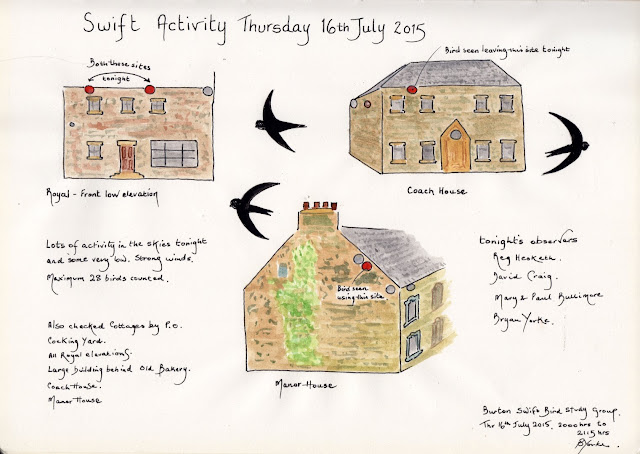 Swift Activity Thursday 16th July 2015
Both these sites
tonight
Bird seen leaving this site tonight
Royal - Front low elevation
Coach House
Lots of activity in the skies tonight
and some very low. Strong winds.
Maximum 28 birds counted.
Also checked Cottages by P.O.
Cocking Yard.
All Royal elevations.
Large building behind Old Bakery.
Coach House.
Manor House
Bird seen
using this site
Manor House
tonight's observers
Reg Hesketh.
David Craig.
Mary & Paul Bullimore
Bryan Yorke.
Burton Swift Bird Study Group.
Thr 16th July 2015. 2000hrs to
2115 hrs
BYorke.